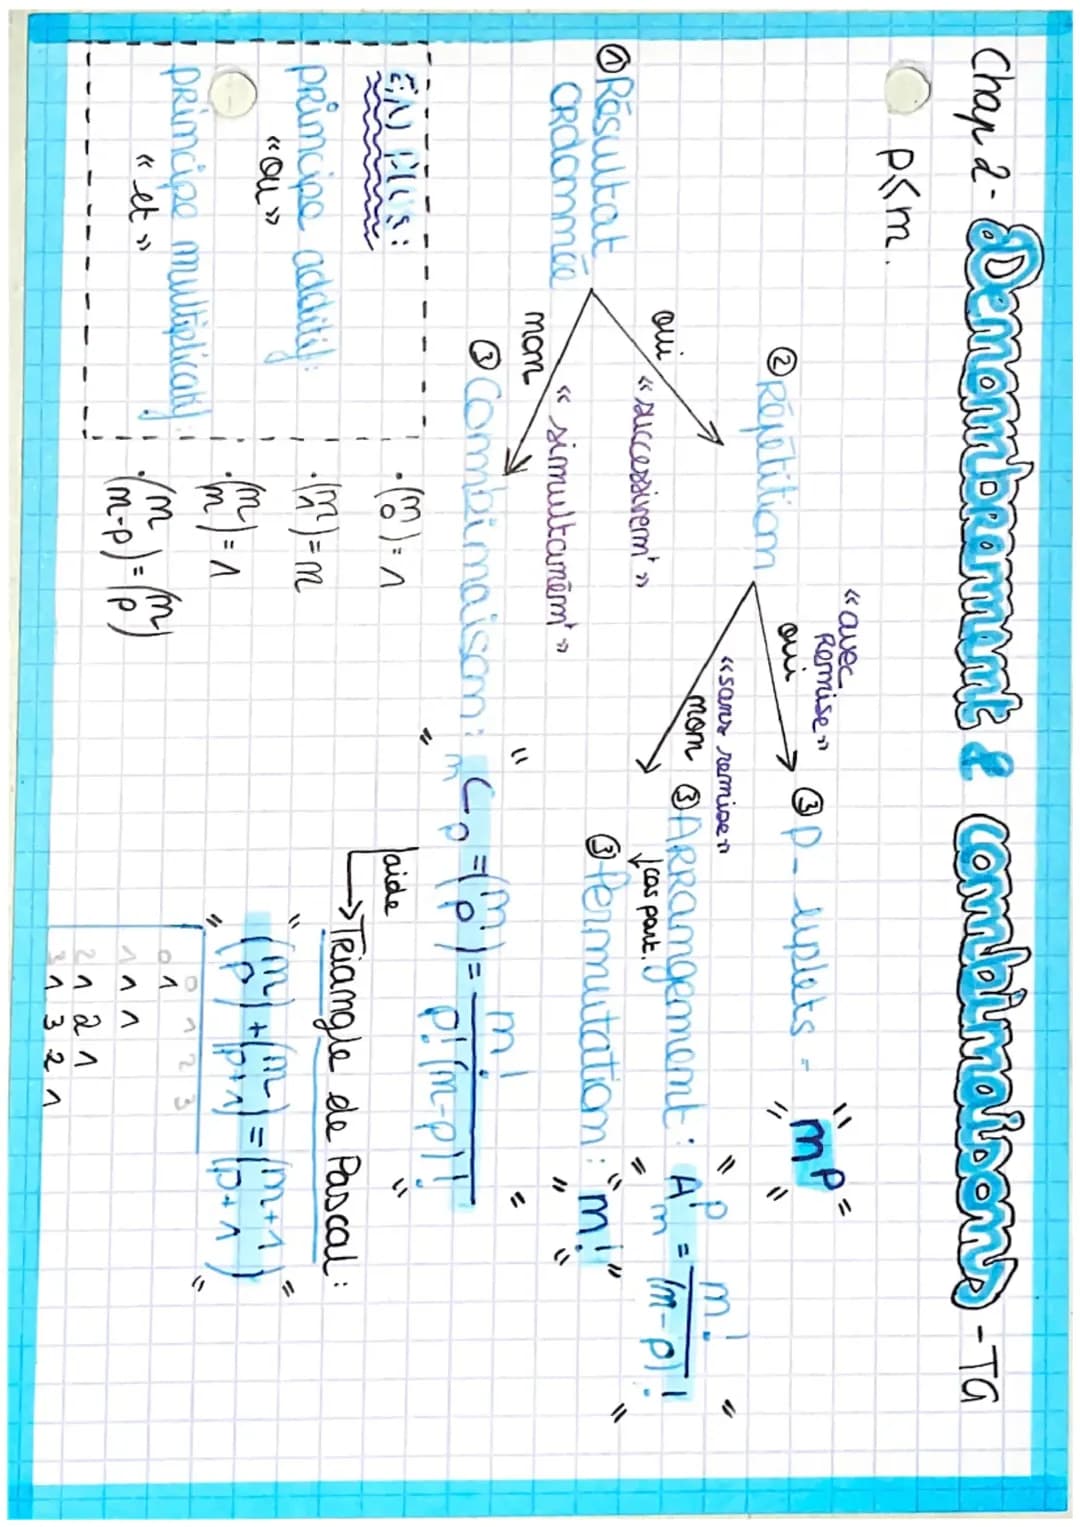 Chap 2 - Dénombrement & combinaisons - TG
p ≤ n.
① Résultat
ordonnée
oui
« successivem^t »
non
« simultaném^t »
② Répétition
« avec
Remise »
oui
③ p-uplets = n^p
« sans remise »
non
③ Arrangement : A_n^p = n! / (n-p)!
↓ cas part.
③ Permutation : n!
③ Combinaison : nCp = (n p) = n! / p!(n-p)!
aide
→ Triangle de Pascal :
(n p) + (n p+1) = (n+1 p+1)
0 1 2 3
0 1
1 1 1
2 1 2 1
3 1 3 2 1
EN PLUS :
principe additif :
« ou »
principe multiplicatif :
« et »
• (n 0) = 1
• (n 1) = n
• (n n) = 1
• (n n-p) = (n p)